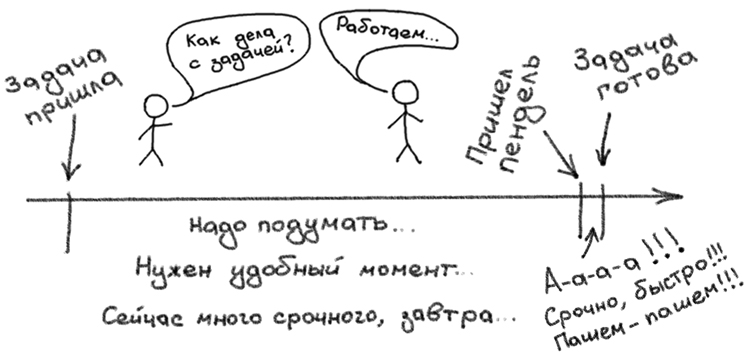 Задача
пришла
Как дела
с задачей?
Работаем...
Пришел
пендель
Задача
готова
Надо подумать...
Нужен удобный момент...
Сейчас много срочного, завтра...
А-а-а-а!!!
Срочно, быстро!!!
Пашем-пашем!!!